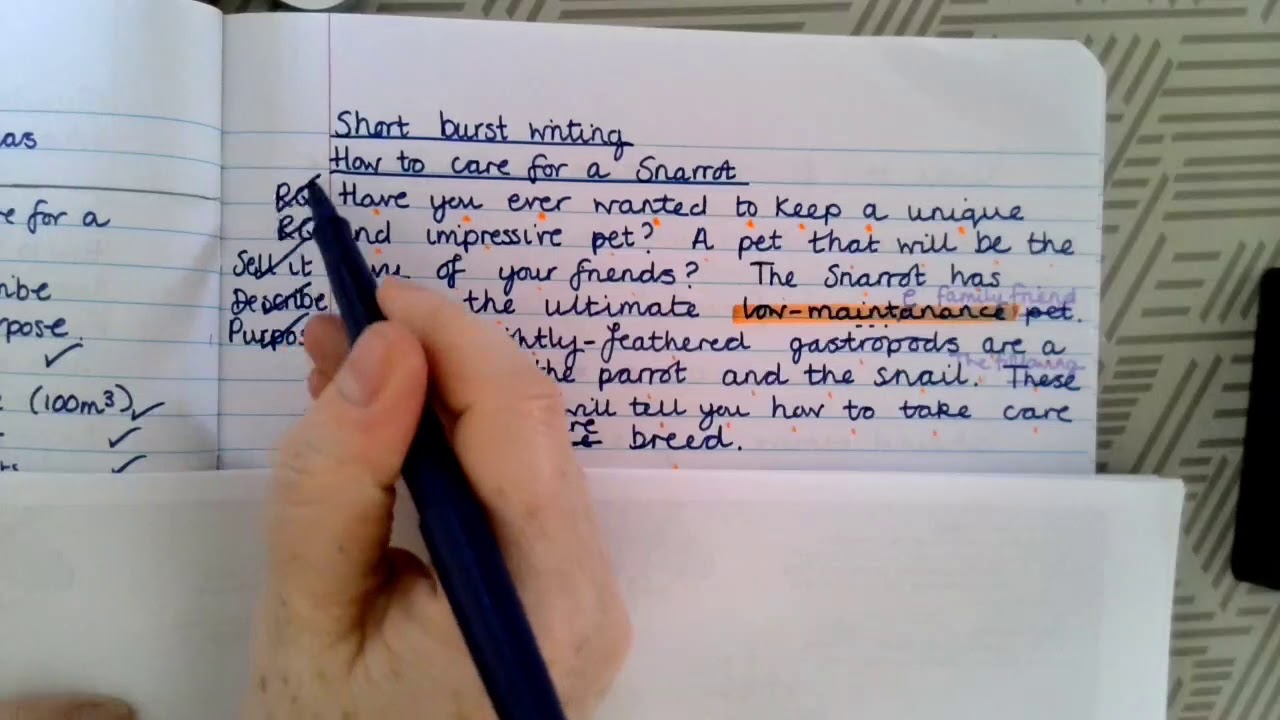 as
e for a
ribe
rpose.
(100m³)
Short burst writing
How to care for a Snarrot
RQ Have you ever wanted to keep a unique
RQ and impressive pet? A pet that will be the
Sell it of your friends? The Snarrot has
Describe the ultimate low-maintanance pet.
e family friend
Purpos ntly-feathered gastropods are a
the parrot and the snail. These
The following
will tell you how to take care
re
breed.